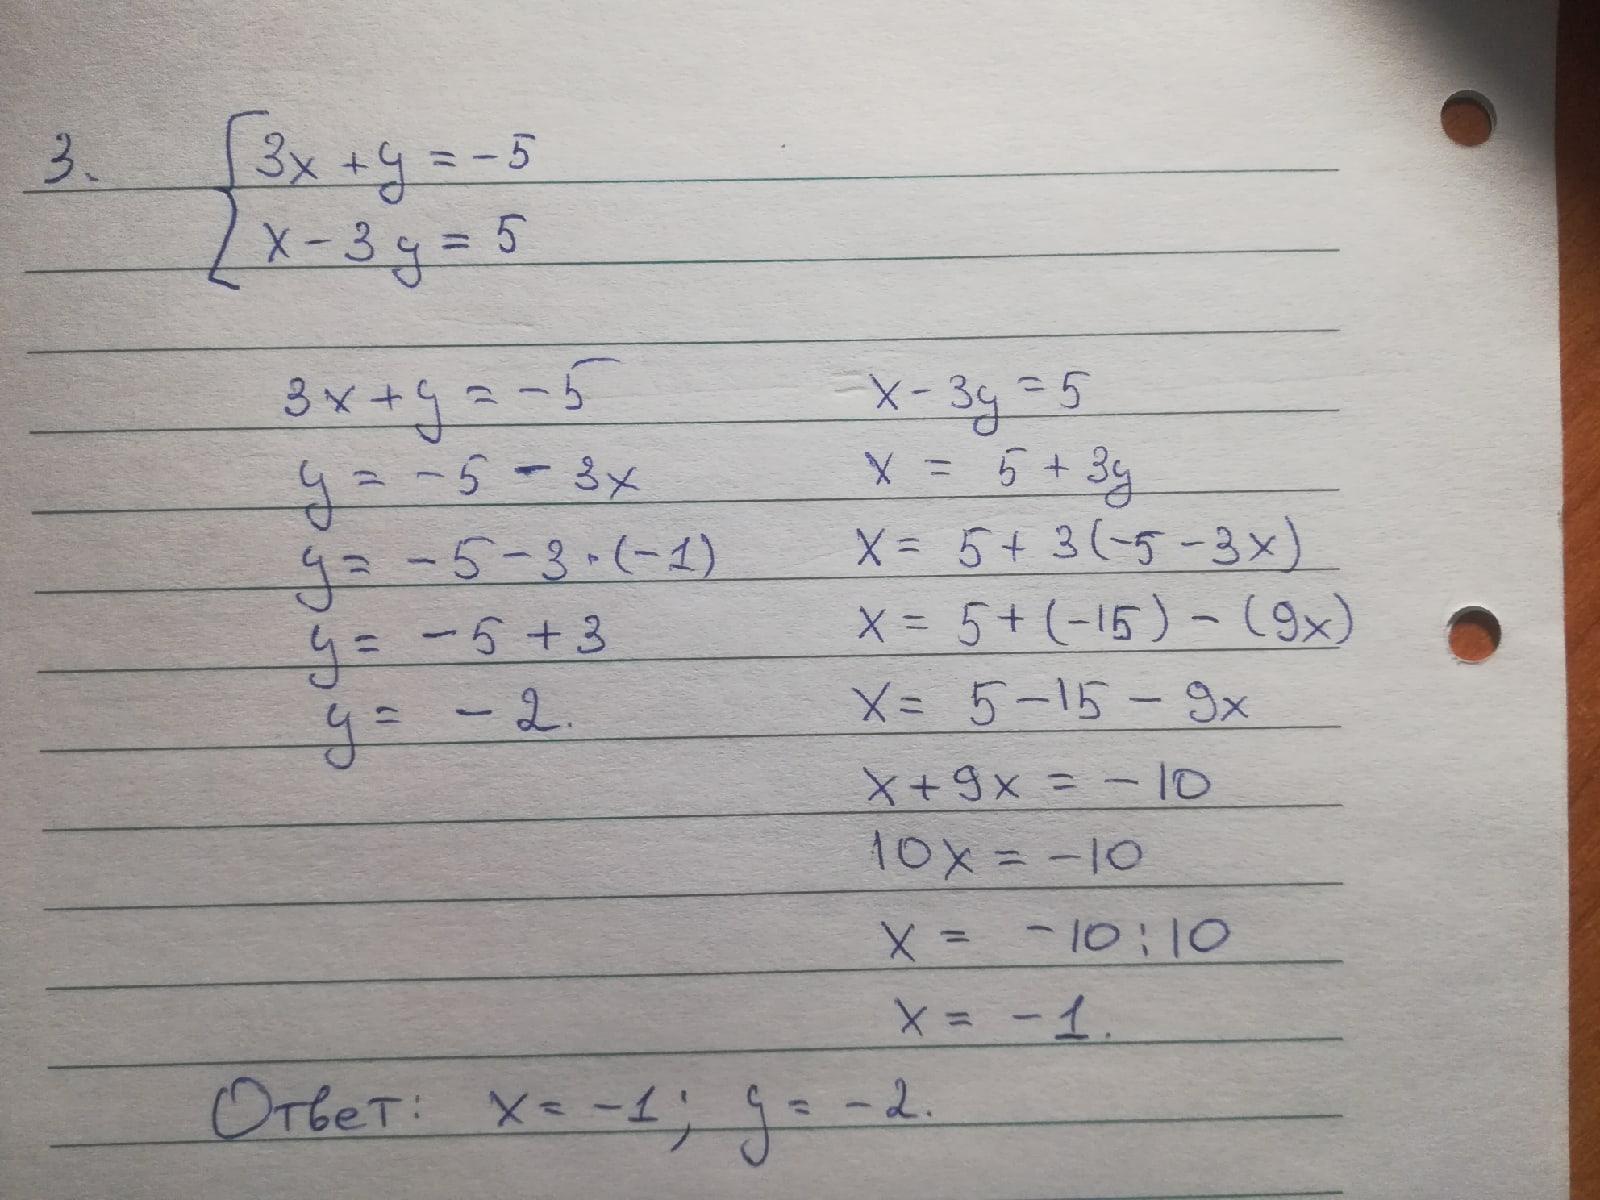 3. 3x + y = -5
x - 3y = 5
3x + y = -5
y = -5 - 3x
y = -5 - 3 · (-1)
y = -5 + 3
y = -2.
x - 3y = 5
x = 5 + 3y
x = 5 + 3(-5 - 3x)
x = 5 + (-15) - (9x)
x = 5 - 15 - 9x
x + 9x = -10
10x = -10
x = -10 : 10
x = -1.
Ответ: x = -1; y = -2.